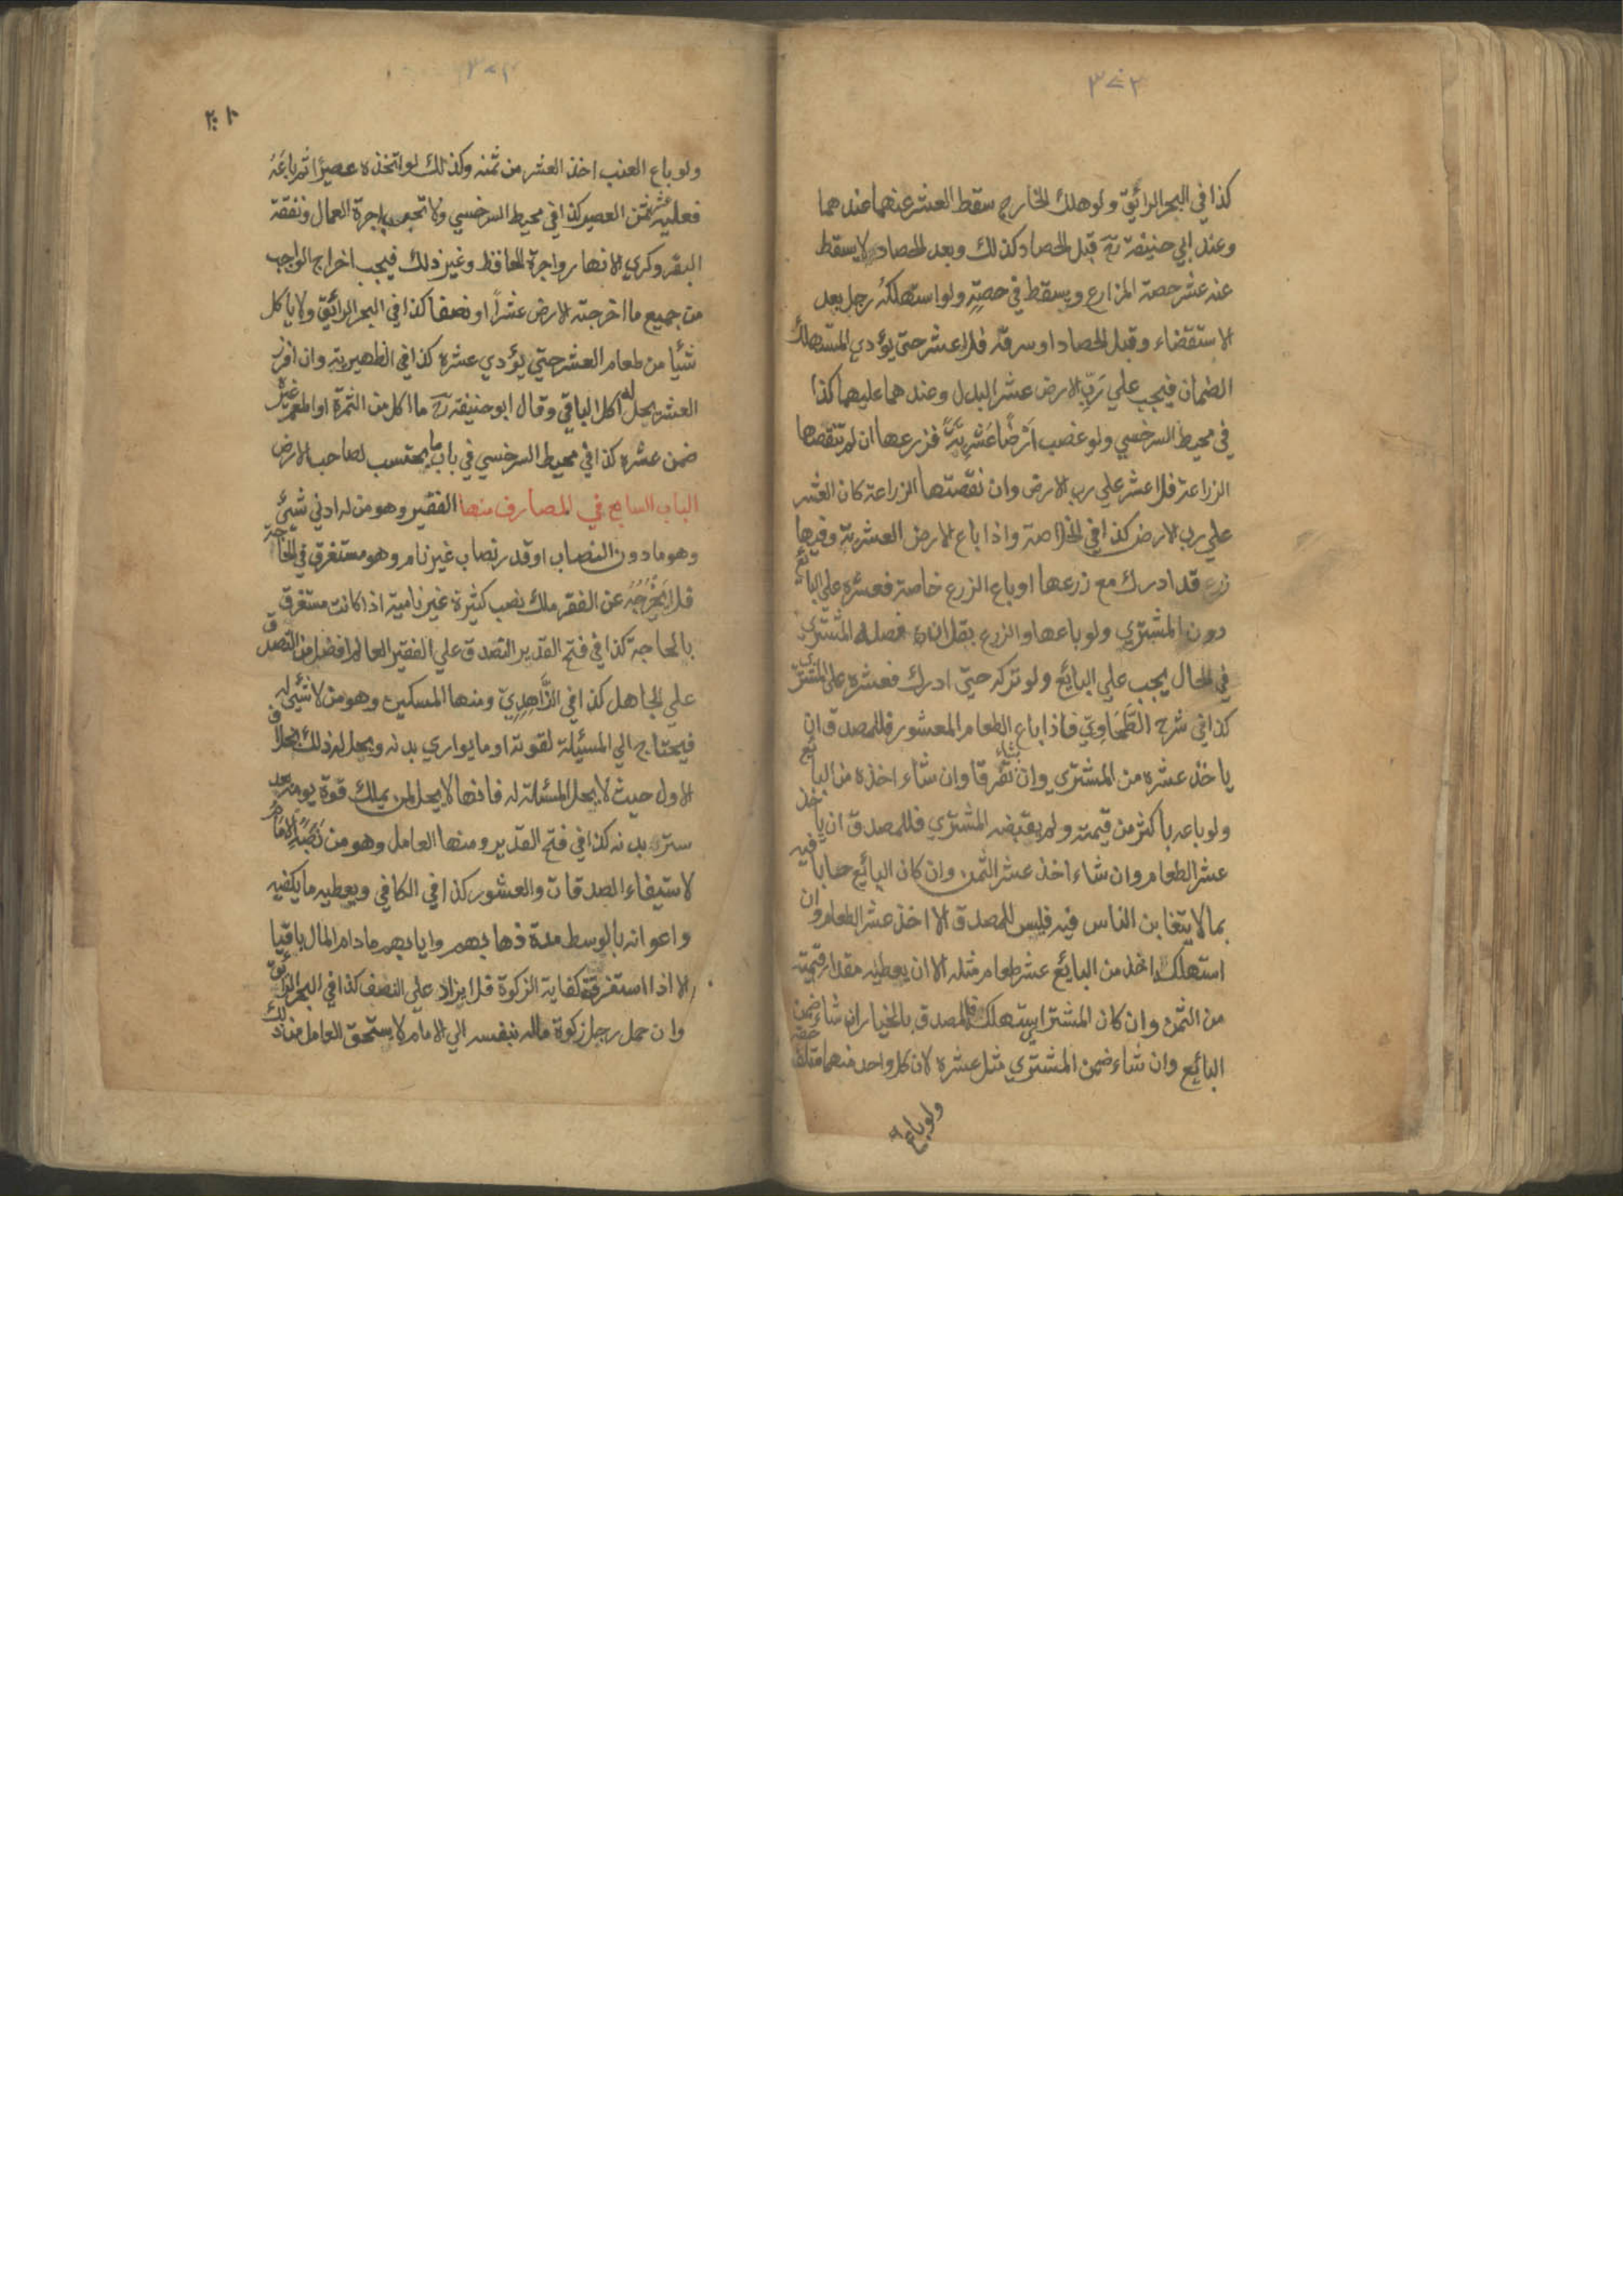 ٣٧٢
كذا في البحر الرائق ولو هلك الخارج سقط العشر عنهما عندهما
وعند ابي حنيفة رح قبل الحصاد كذلك وبعد الحصاد لا يسقط
عنه عشر حصة المزارع ويسقط في حصته ولو استهلكه رجل بعد
الاستقضاء وقبل الحصاد او سرقه فلا عشر حتى يؤدي المستهلك
الضمان فيجب علي رَبِّ الارض عشر البدل وعندهما عليهما كذا
في محيط السرخسي ولو غصب اَرْضًا عُشْرِيَّةً فزرعها ان لم تنقصها
الزراعة فلا عشر علي رب الارض وان نقصتها الزراعة كان العشر
علي رب الارض كذا في الخلاصة واذا باع الارض العشرية وفيها
زرع قد ادرك مع زرعها او باع الزرع خاصة فعشره علي البائع
دون المشتري ولو باعها والزرع بقل ان فصله المشتري
في الحال يجب علي البائع ولو تركه حتي ادرك فعشره علي المشتري
كذا في شرح الطَّحَاوِيّ فاذا باع الطعام المعشور فللمصدق ان
ياخذ عشره من المشتري وان تفرقا وان شاء اخذه من البائع
ولو باعه باكثر من قيمته ولم يقبضه المشتري فللمصدق ان ياخذ
عشر الطعام وان شاء اخذ عشر الثمن وان كان البائع حابا فيه
بما لا يتغابن الناس فيه فليس للمصدق الا اخذ عشر الطعام وان
استهلك اخذ من البائع عشر طعام مثله الا ان يعطيه مقدار قيمته
من الثمن وان كان المشتري استهلك فالمصدق بالخيار ان شاء ضمن
البائع وان شاء ضمن المشتري مثل عشره لان كل واحد منهما متلف حقه
ولو باع
ولو باع العنب اخذ العشر من ثمنه وكذلك لو اتخذه عصيرًا ثم باعَهُ
فعليه عشر ثمن العصير كذا في محيط السرخسي ولا تحسب اجرة العمال ونفقة
البقر وكري الانهار واجرة الحافظ وغير ذلك فيجب اخراج الواجب
من جميع ما اخرجته الارض عشرًا او نصفا كذا في البحر الرائق ولا ياكل
شئيا من طعام العشر حتي يؤدي عشره كذا في الظهيرية وان افرز
العشر يحل له اكل الباقي وقال ابو حنيفة رح ما اكل من الثمرة او اطعم غيره
ضمن عشره كذا في محيط السرخسي في باب ما يحتسب لصاحب الارض
الباب السابع في المصارف منها الفقير وهو من له ادني شيئ
وهو ما دون النصاب او قدر نصاب غير نام وهو مستغرق في الحاجة
فلا يُخْرِجُهُ عن الفقر ملك نصب كثيرة غير نامية اذا كانت مستغرق
بالحاجة كذا في فتح القدير التصدق علي الفقير العالم افضل من التصدق
علي الجاهل كذا في الزَّاهِدِيّ ومنها المسكين وهو من لا شئي له
فيحتاج الي المسئيلة لقوته او ما يواري بدنه ويحل له ذلك بخلاف
الاول حيث لا يحل المسئلة له فانها لا يحل لمن يملك قوة يومه بعد
سترة بدنه كذا في فتح القدير ومنها العامل وهو من نَصَبَهُ الِامَامُ
لاستيفاء الصدقات والعشور كذا في الكافي ويعطيه ما يكفيه
واعوانه بالوسط مدة ذهابهم وايابهم مادام المال باقيا
الا اذا استغرقت كفاية الزكوة فلا يزاد علي النصف كذا في البحر الرائق
وان حمل رجل زكوة ماله بنفسه الي الامام لا يستحق العامل من ذلك